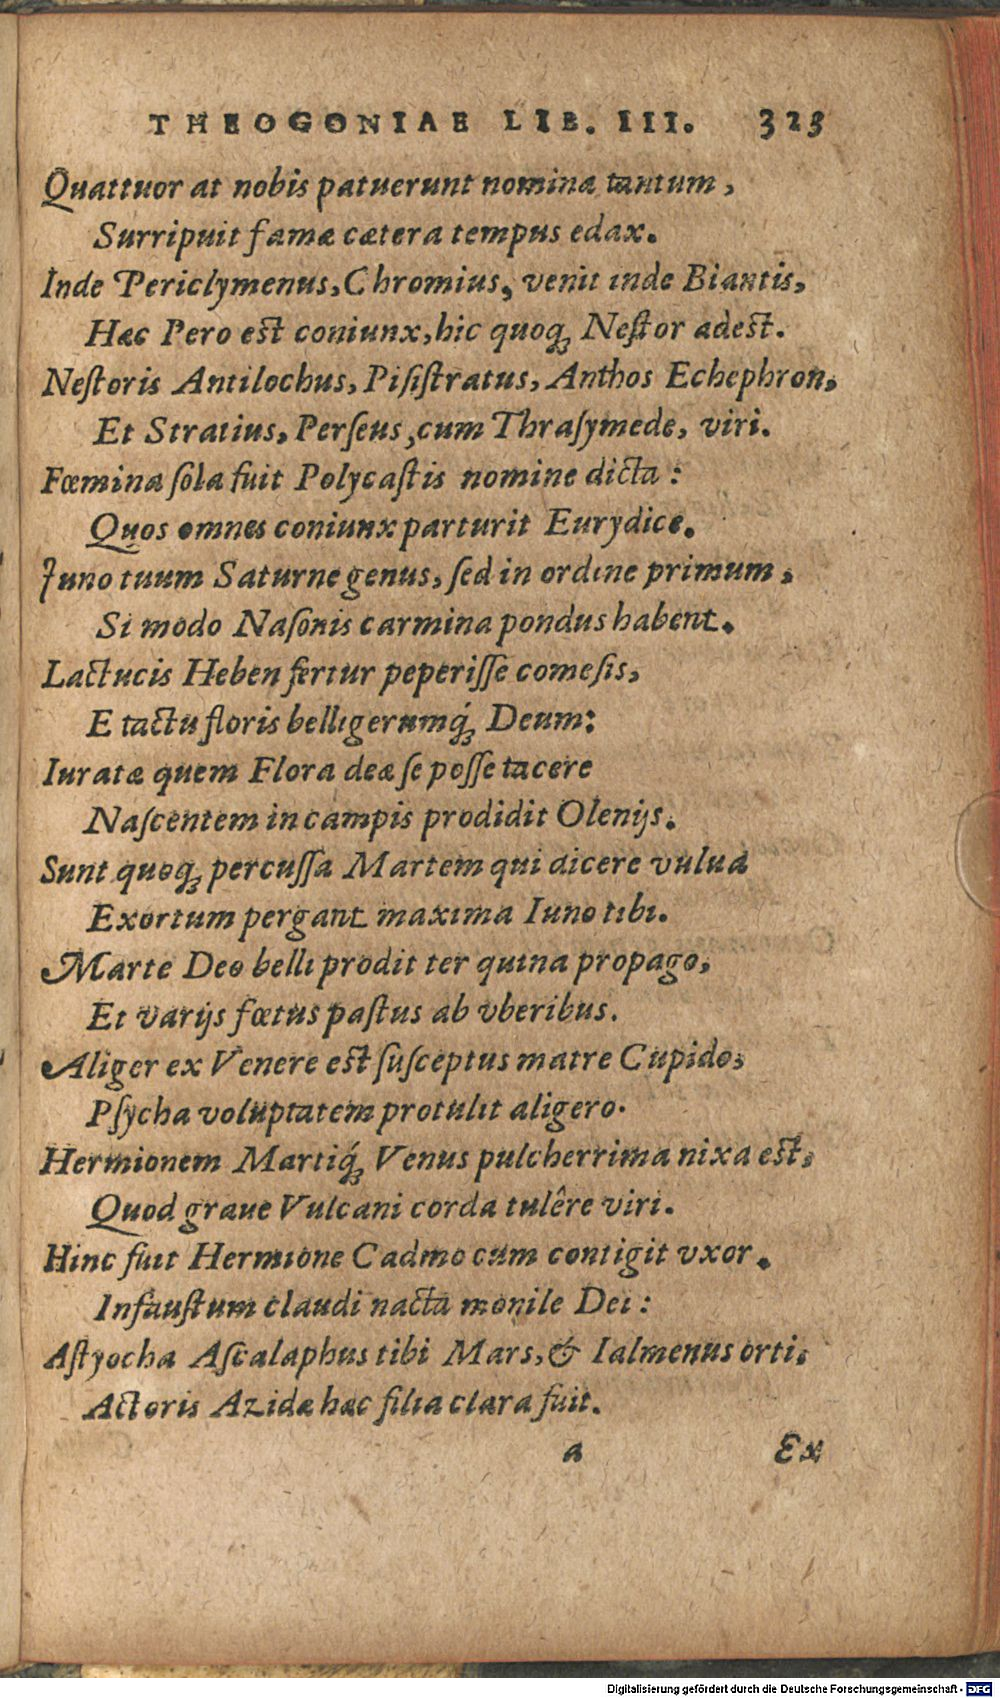 THEOGONIAE LIB. III. 323
Quattuor at nobis patuerunt nomina tantum,
Surripuit famæ cætera tempus edax.
Inde Periclymenus, Chromius, venit inde Biantis,
Hæc Pero est coniunx, hic quoqꝫ Nestor adest.
Nestoris Antilochus, Pisistratus, Anthos Echephron,
Et Stratius, Perseus, cum Thrasymede, viri.
Fœmina sola fuit Polycastis nomine dicta:
Quos omnes coniunx parturit Eurydice.
Iuno tuum Saturne genus, sed in ordine primum,
Si modo Nasonis carmina pondus habent.
Lactucis Heben fertur peperisse comesis,
E tactu floris belligerumqꝫ́ Deum:
Iuratæ quem Flora deæ se posse tacere
Nascentem in campis prodidit Olenijs.
Sunt quoqꝫ percussa Martem qui dicere vulua
Exortum pergant maxima Iuno tibi.
Marte Deo belli prodit ter quina propago,
Et varijs fœtus pastus ab vberibus.
Aliger ex Venere est susceptus matre Cupido,
Psycha voluptatem protulit aligero.
Hermionem Martiqꝫ́ Venus pulcherrima nixa est,
Quod graue Vulcani corda tulêre viri.
Hinc fuit Hermione Cadmo cum contigit vxor.
Infaustum claudi nacta monile Dei:
Astyocha Ascalaphus tibi Mars, & Ialmenus orti,
Actoris Azidæ hæc filia clara fuit.
a Ex
Digitalisierung gefördert durch die Deutsche Forschungsgemeinschaft - DFG